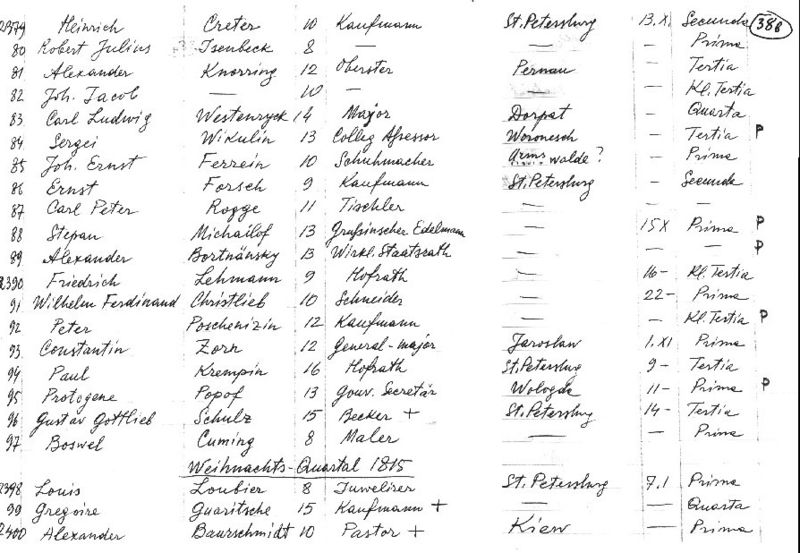 2379 Heinrich Creter 10 Kaufmann St. Petersburg 13.X. Secunda 388
80 Robert Julius Isenbeck 8 — — — Prima
81 Alexander Knorring 12 Oberster Pernau — Tertia
82 Joh. Jacob — 10 — — — Kl. Tertia
83 Carl Ludwig Westenryck 14 Major Dorpat — Quarta
84 Sergei Wikulin 13 Colleg Assessor Woronesch — Tertia P
85 Joh. Ernst Ferrein 10 Schuhmacher Arnswalde? — Prima
86 Ernst Forsch 9 Kaufmann St. Petersburg — Secunda
87 Carl Peter Rogge 11 Tischler — — —
88 Stepan Michailof 13 Grusinscher Edelmann — 15 X Prima P
89 Alexander Bortnänsky 13 Wirkl. Staatsrath — — — P
2390 Friedrich Lehmann 9 Hofrath — 16 – Kl. Tertia
91 Wilhelm Ferdinand Christlieb 10 Schneider — 22 – Prima
92 Peter Poschenizin 12 Kaufmann — — Kl. Tertia P
93 Constantin Zorn 12 General-major Jaroslaw 1. XI Prima
94 Paul Krempin 16 Hofrath St. Petersburg 9 – Tertia
95 Protogene Popof 13 Gouv. Secretär Wologda 11 – Prima P
96 Gustav Gottlieb Schulz 15 Becker + St. Petersburg 14 – Tertia
97 Boswel Cuming 8 Maler — — Prima
Weihnachts-Quartal 1815
2398 Louis Loubier 8 Juwelirer St. Petersburg 7.1 Prima
99 Gregoire Guaritsche 15 Kaufmann + — — Quarta
2400 Alexander Baurschmidt 10 Pastor + Kiew — Prima